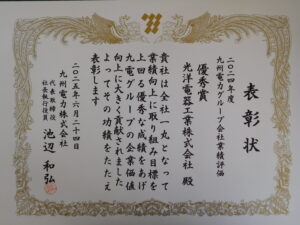 表彰状
二〇二四年度
九州電力グループ会社業績評価
優秀賞
光洋電器工業株式会社 殿
貴社は全社一丸となって
業績向上に取り組み目標を
上回る優秀な成績をあげ
九電グループの企業価値
向上に大きく貢献されました
よってその功績をたたえ
表彰します
二〇二五年六月二十四日
九州電力株式会社
代表取締役
社長執行役員
池辺和弘